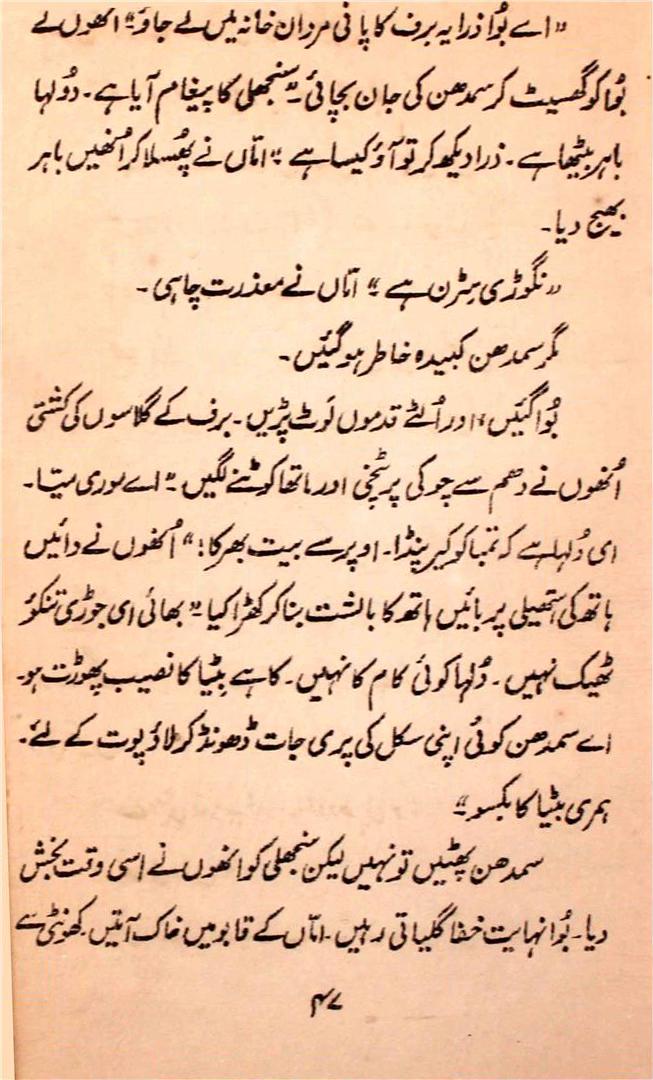 ”اے بُوا ذرا یہ برف کا پانی مردان خانہ میں لے جاؤ“ انھوں نے
بُوا کو گھسیٹ کر سمدھن کی جان بچائی۔ ”سنجھلی کا پیغام آیا ہے۔ دُولہا
باہر بیٹھا ہے۔ ذرا دیکھ کر تو آؤ کیسا ہے“ امّاں نے پھُسلا کر اُنھیں باہر
بھیج دیا۔
”نگوڑی سِڑن ہے“ امّاں نے معذرت چاہی۔
مگر سمدھن کبیدہ خاطر ہو گئیں۔
بُوا گئیں، اور اُلٹے قدموں لَوٹ پڑیں۔ برف کے گلاسوں کی کشتی
اُنھوں نے دھم سے چوکی پر پٹخی اور ماتھا کوٹنے لگیں۔ ”اے موری میّا۔
ای دُلہا ہے کہ تمباکو کیر پنڈا۔ اوپر سے بیت بھر کا!“ اُنھوں نے دائیں
ہاتھ کی ہتھیلی پر بائیں ہاتھ کا بالشت بنا کر کھڑا کیا۔ ”بھائی ای جوڑی تنکؤ
ٹھیک نہیں۔ دُلہا کوئی کام کا نہیں۔ کاہے بِٹیا کا نصیب پھوڑت ہو۔
اے سمدھن کوئی اپنی سکل کی پری جات ڈھونڈ کر لاؤ پوت کے لئے۔
ہمری بٹیا کا بکسو۔“
سمدھن پھٹیں تو نہیں لیکن سنجھلی کو انھوں نے اسی وقت بخش
دیا۔ بُوا نہایت خفا گلیاتی رہیں۔ امّاں کے قابو میں خاک آتیں۔ کھونٹی سے
۴۷